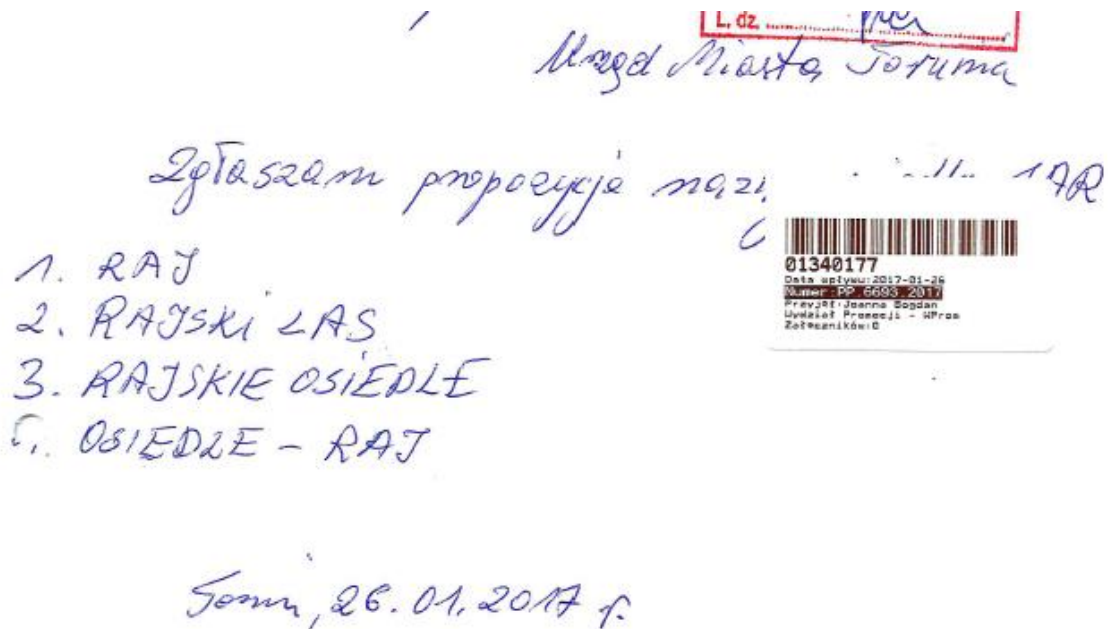 L. dz.
Urząd Miasta Torunia
Zgłaszam propozycję JAR
1. RAJ
2. RAJSKI LAS
3. RAJSKIE OSIEDLE
OSIEDLE - RAJ
01340177
Data wpływu: 2017-01-26
Numer: PP.6693.2017
Przyjął: Joanna Bogdan
Wydział Promocji - WProm
Załączników: 0
Toruń, 26.01.2017 r.